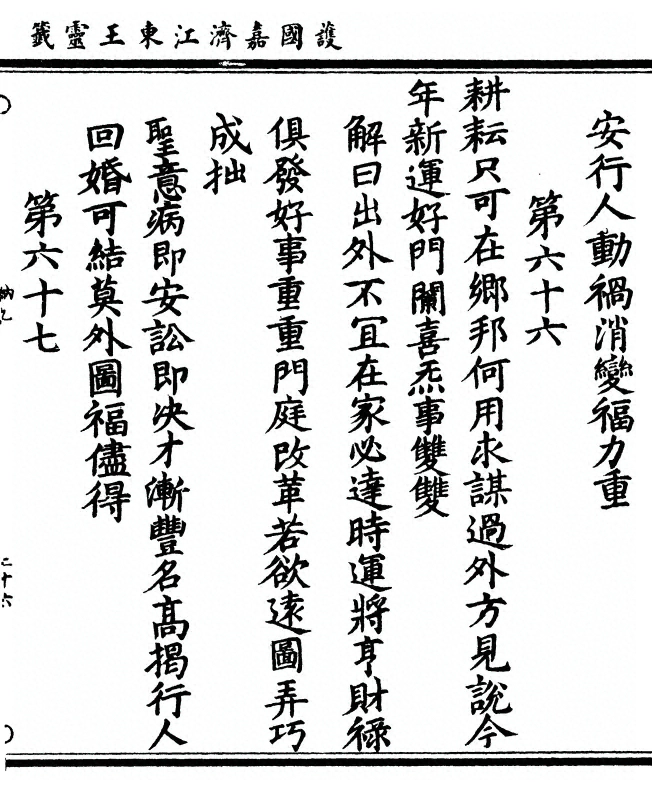 護國嘉濟江東王靈籤
安行人動禍消變福力重
第六十六
耕耘只可在鄉邦何用求謀過外方見說今
年新運好門闌喜炁事雙雙
解曰出外不冝在家必達時運將亨財祿
俱發好事重重門庭改革若欲遠圖弄巧
成拙
聖意病即安訟即决才漸豐名髙揭行人
回婚可結莫外圖福儘得
第六十七
二十六